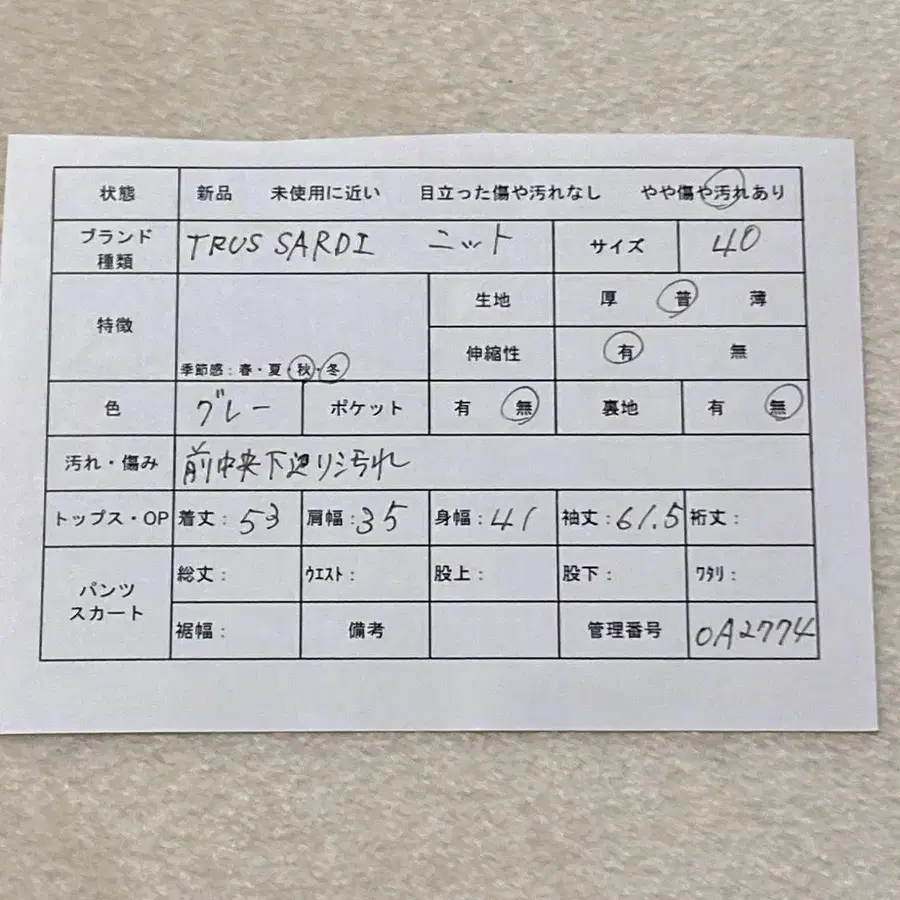 状態 新品 未使用に近い 目立った傷や汚れなし やや傷や汚れあり
ブランド
種類 TRUSSARDI ニット サイズ 40
特徴 生地 厚 普 薄
季節感：春・夏・秋・冬 伸縮性 有 無
色 グレー ポケット 有 無 裏地 有 無
汚れ・傷み 前中央下辺り汚れ
トップス・OP 着丈：53 肩幅：35 身幅：41 袖丈：61.5 裄丈：
パンツ
スカート 総丈： ｳｴｽﾄ： 股上： 股下： ﾜﾀﾘ：
裾幅： 備考 管理番号 OA2774